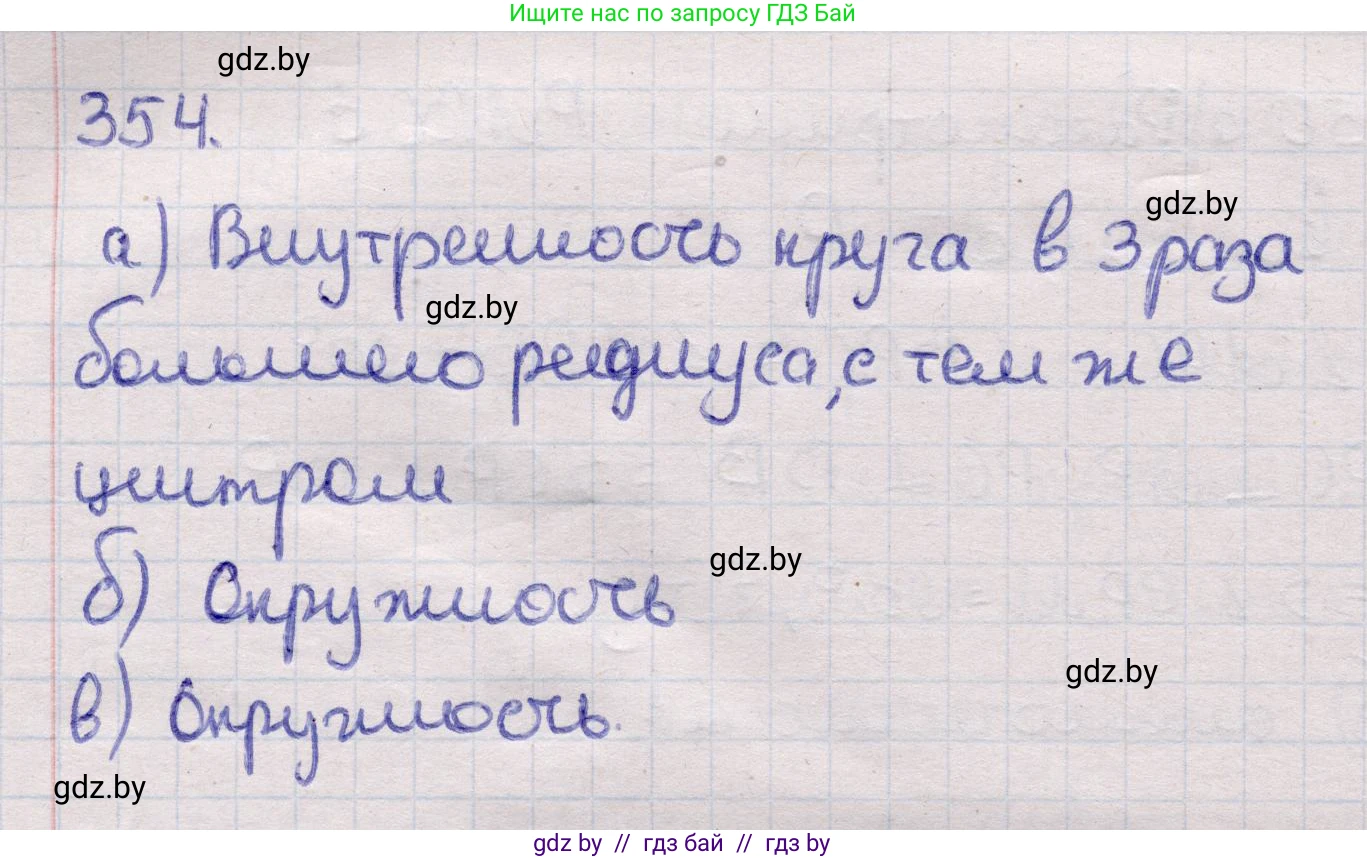 Ищите нас по запросу ГДЗ Бай
gdz.by
354.
gdz.by
а) Внутренность круга в 3 раза
gdz.by
большего радиуса, с тем же
центром
gdz.by
б) Окружность
gdz.by
в) Окружность.
gdz.by
gdz by // гдз бай // гдз by